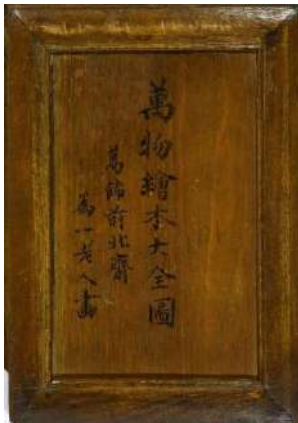 萬物繪本大全圖
葛飾前北齋
為一老人畫